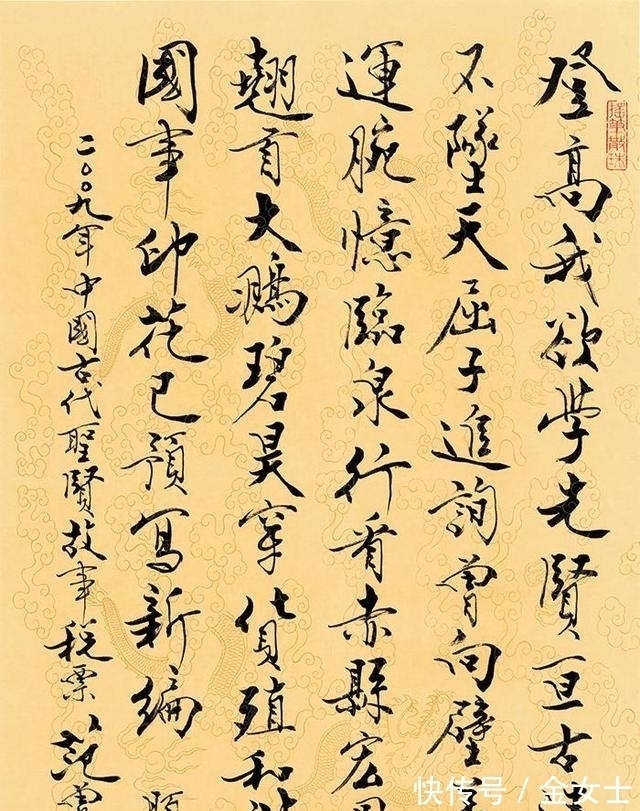 登高我欲学先贤亘古
不坠天屈子进询曾向壁
運腕憶臨泉行看赤縣宏
翘首大鹏碧昊穿货殖和
國事印花已預寫新编
二〇〇九年中國古代聖賢故事税票 范曾
快传号／金女士